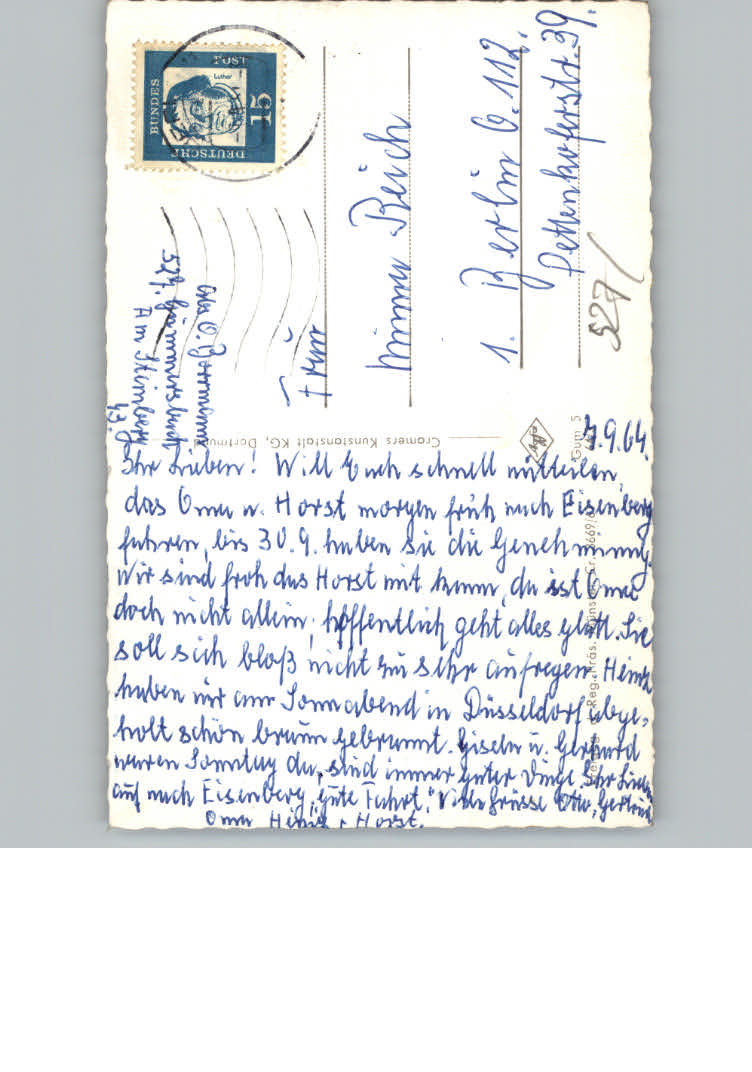 DEUTSCHE
BUNDES
POST
15
Luther
Frau
Minna Reich
1. Berlin O. 112.
Pettenkoferstr. 39.
527/
Abs. O. Borrmann
527. Gummersbach
Am Steinberg
43.
Cramers Kunstanstalt KG, Dortmund
Gum 5
7.9.64.
Ihr Lieben! Will Euch schnell mitteilen,
das Oma u. Horst morgen früh nach Eisenberg
fahren, bis 30.9. haben sie die Genehmigung.
Wir sind froh das Horst mit kann, da ist Oma
doch nicht allein; hoffentlich geht alles glatt. Sie
soll sich bloß nicht zu sehr aufregen. Heinz
haben wir am Sonnabend in Düsseldorf abge-
holt schön braun gebrannt. Gisela u. Gerhard
waren Sonntag da, sind immer guter Dinge. Ihr Lieben
auf nach Eisenberg, "gute Fahrt." Viele Grüsse Otto, Gertrud
Oma Heinz + Horst.